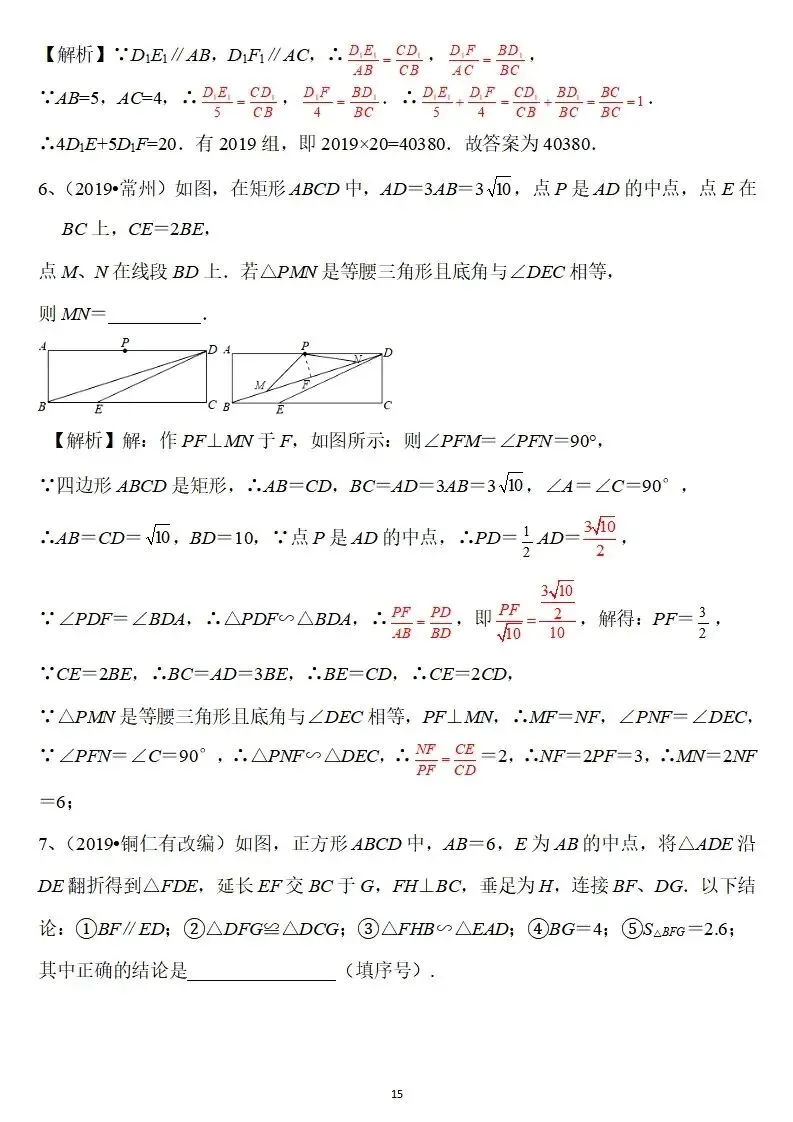 【解析】∵D₁E₁∥AB，D₁F₁∥AC，∴D₁E₁/AB=CD₁/CB，D₁F/AC=BD₁/BC，
∵AB=5，AC=4，∴D₁E₁/5=CD₁/CB，D₁F/4=BD₁/BC．∴D₁E₁/5+D₁F/4=CD₁/CB+BD₁/BC=BC/BC=1．
∴4D₁E+5D₁F=20．有 2019 组，即 2019×20=40380．故答案为 40380．
6、（2019•常州）如图，在矩形 ABCD 中，AD＝3AB＝3√10，点 P 是 AD 的中点，点 E 在
BC 上，CE＝2BE，
点 M、N 在线段 BD 上．若△PMN 是等腰三角形且底角与∠DEC 相等，
则 MN＝__________．
A P D A P D
N
M F
B E C B E C
【解析】解：作 PF⊥MN 于 F，如图所示：则∠PFM＝∠PFN＝90°，
∵四边形 ABCD 是矩形，∴AB＝CD，BC＝AD＝3AB＝3√10，∠A＝∠C＝90°，
∴AB＝CD＝√10，BD＝10，∵点 P 是 AD 的中点，∴PD＝1/2 AD＝3√10/2，
∵∠PDF＝∠BDA，∴△PDF∽△BDA，∴PF/AB=PD/BD，即PF/√10=(3√10/2)/10，解得：PF＝3/2，
∵CE＝2BE，∴BC＝AD＝3BE，∴BE＝CD，∴CE＝2CD，
∵△PMN 是等腰三角形且底角与∠DEC 相等，PF⊥MN，∴MF＝NF，∠PNF＝∠DEC，
∵∠PFN＝∠C＝90°，∴△PNF∽△DEC，∴NF/PF=CE/CD＝2，∴NF＝2PF＝3，∴MN＝2NF
＝6；
7、（2019•铜仁有改编）如图，正方形 ABCD 中，AB＝6，E 为 AB 的中点，将△ADE 沿
DE 翻折得到△FDE，延长 EF 交 BC 于 G，FH⊥BC，垂足为 H，连接 BF、DG．以下结
论：①BF∥ED；②△DFG≌△DCG；③△FHB∽△EAD；④BG＝4；⑤S△BFG＝2.6；
其中正确的结论是________________（填序号）.
15